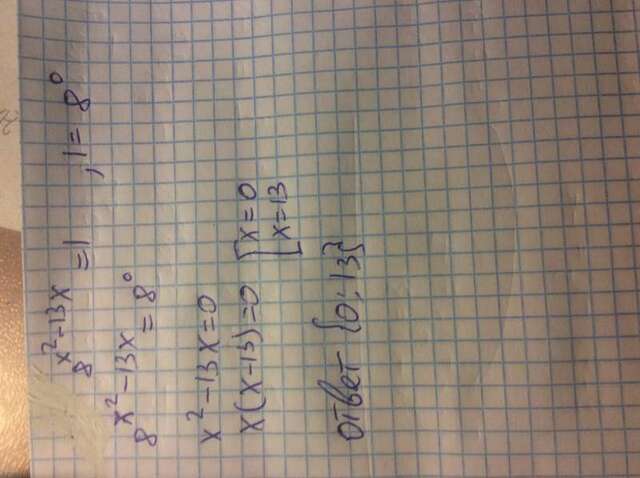 8^{x^2-13x} = 1 , 1 = 8^0
8^{x^2-13x} = 8^0
x^2-13x=0
x(x-13)=0 [x=0
x=13
ответ {0; 13}